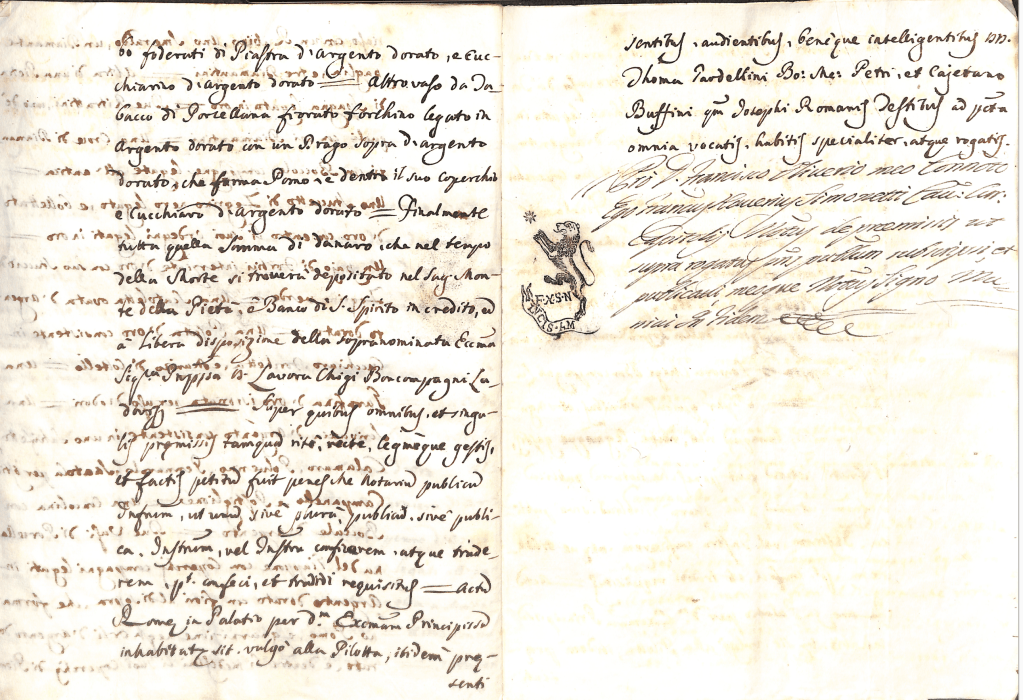 bo foderati di Piastra d'Argento dorato, e Cuc-
chiarino d'argento dorato = Altro vaso da Ta-
bacco di Porcellana fiorato forchino legato in
Argento dorato con un Drago sopra d'argento
dorato, che forma Pomo, e dentro il suo coperchio
e Cucchiaro d'Argento dorato = Finalmente
tutta quella somma di danaro, che nel tempo
della Morte si troverà depositato nel Sag: Mon-
te della Pietà, ò Banco di S. Spirito in credito, ed
à libera disposizione della sopranominata Eccma
Sig.ra Prnpssa D. Lavora Chigi Boncompagni Lu-
dovisj = Super quibus omnibus, et singu-
lis premissis tamquam ritè, rectè, legmèque gestis,
et factis petitum fuit penes me Notarium publicum
Infrum, ut unum sivè plura, publicum, sivè publi-
ca, Instrum, vel Instra conficerem, atque trade-
rem, pt confeci, et tradidi requisitus = Actum
Rome in Palatio per d.am Excmam Principissam
inhabitat. sit. vulgo alla Pilotta, ibidem pre-
senti
sentibus, audientibus, beneque intelligentibus DD.
Thoma Pardellini Bo: Me: Petri, et Cajetano
Buffini qm Josephi Romanis Testibus ad pcta
omnia vocatis, habitis specialiter, atque rogatis.
Pro D. Francisco Oliverio meo Connoto
Ego Franciscus Xaverius Simonetti Cau: Cur:
Capitolij Notarius de premissis ut
supra rogatus pns publicum subscripsi, et
publicavi meoque Notarij Signo mu-
nivi In Fidem
F.X.S.N
LUCIS.AM